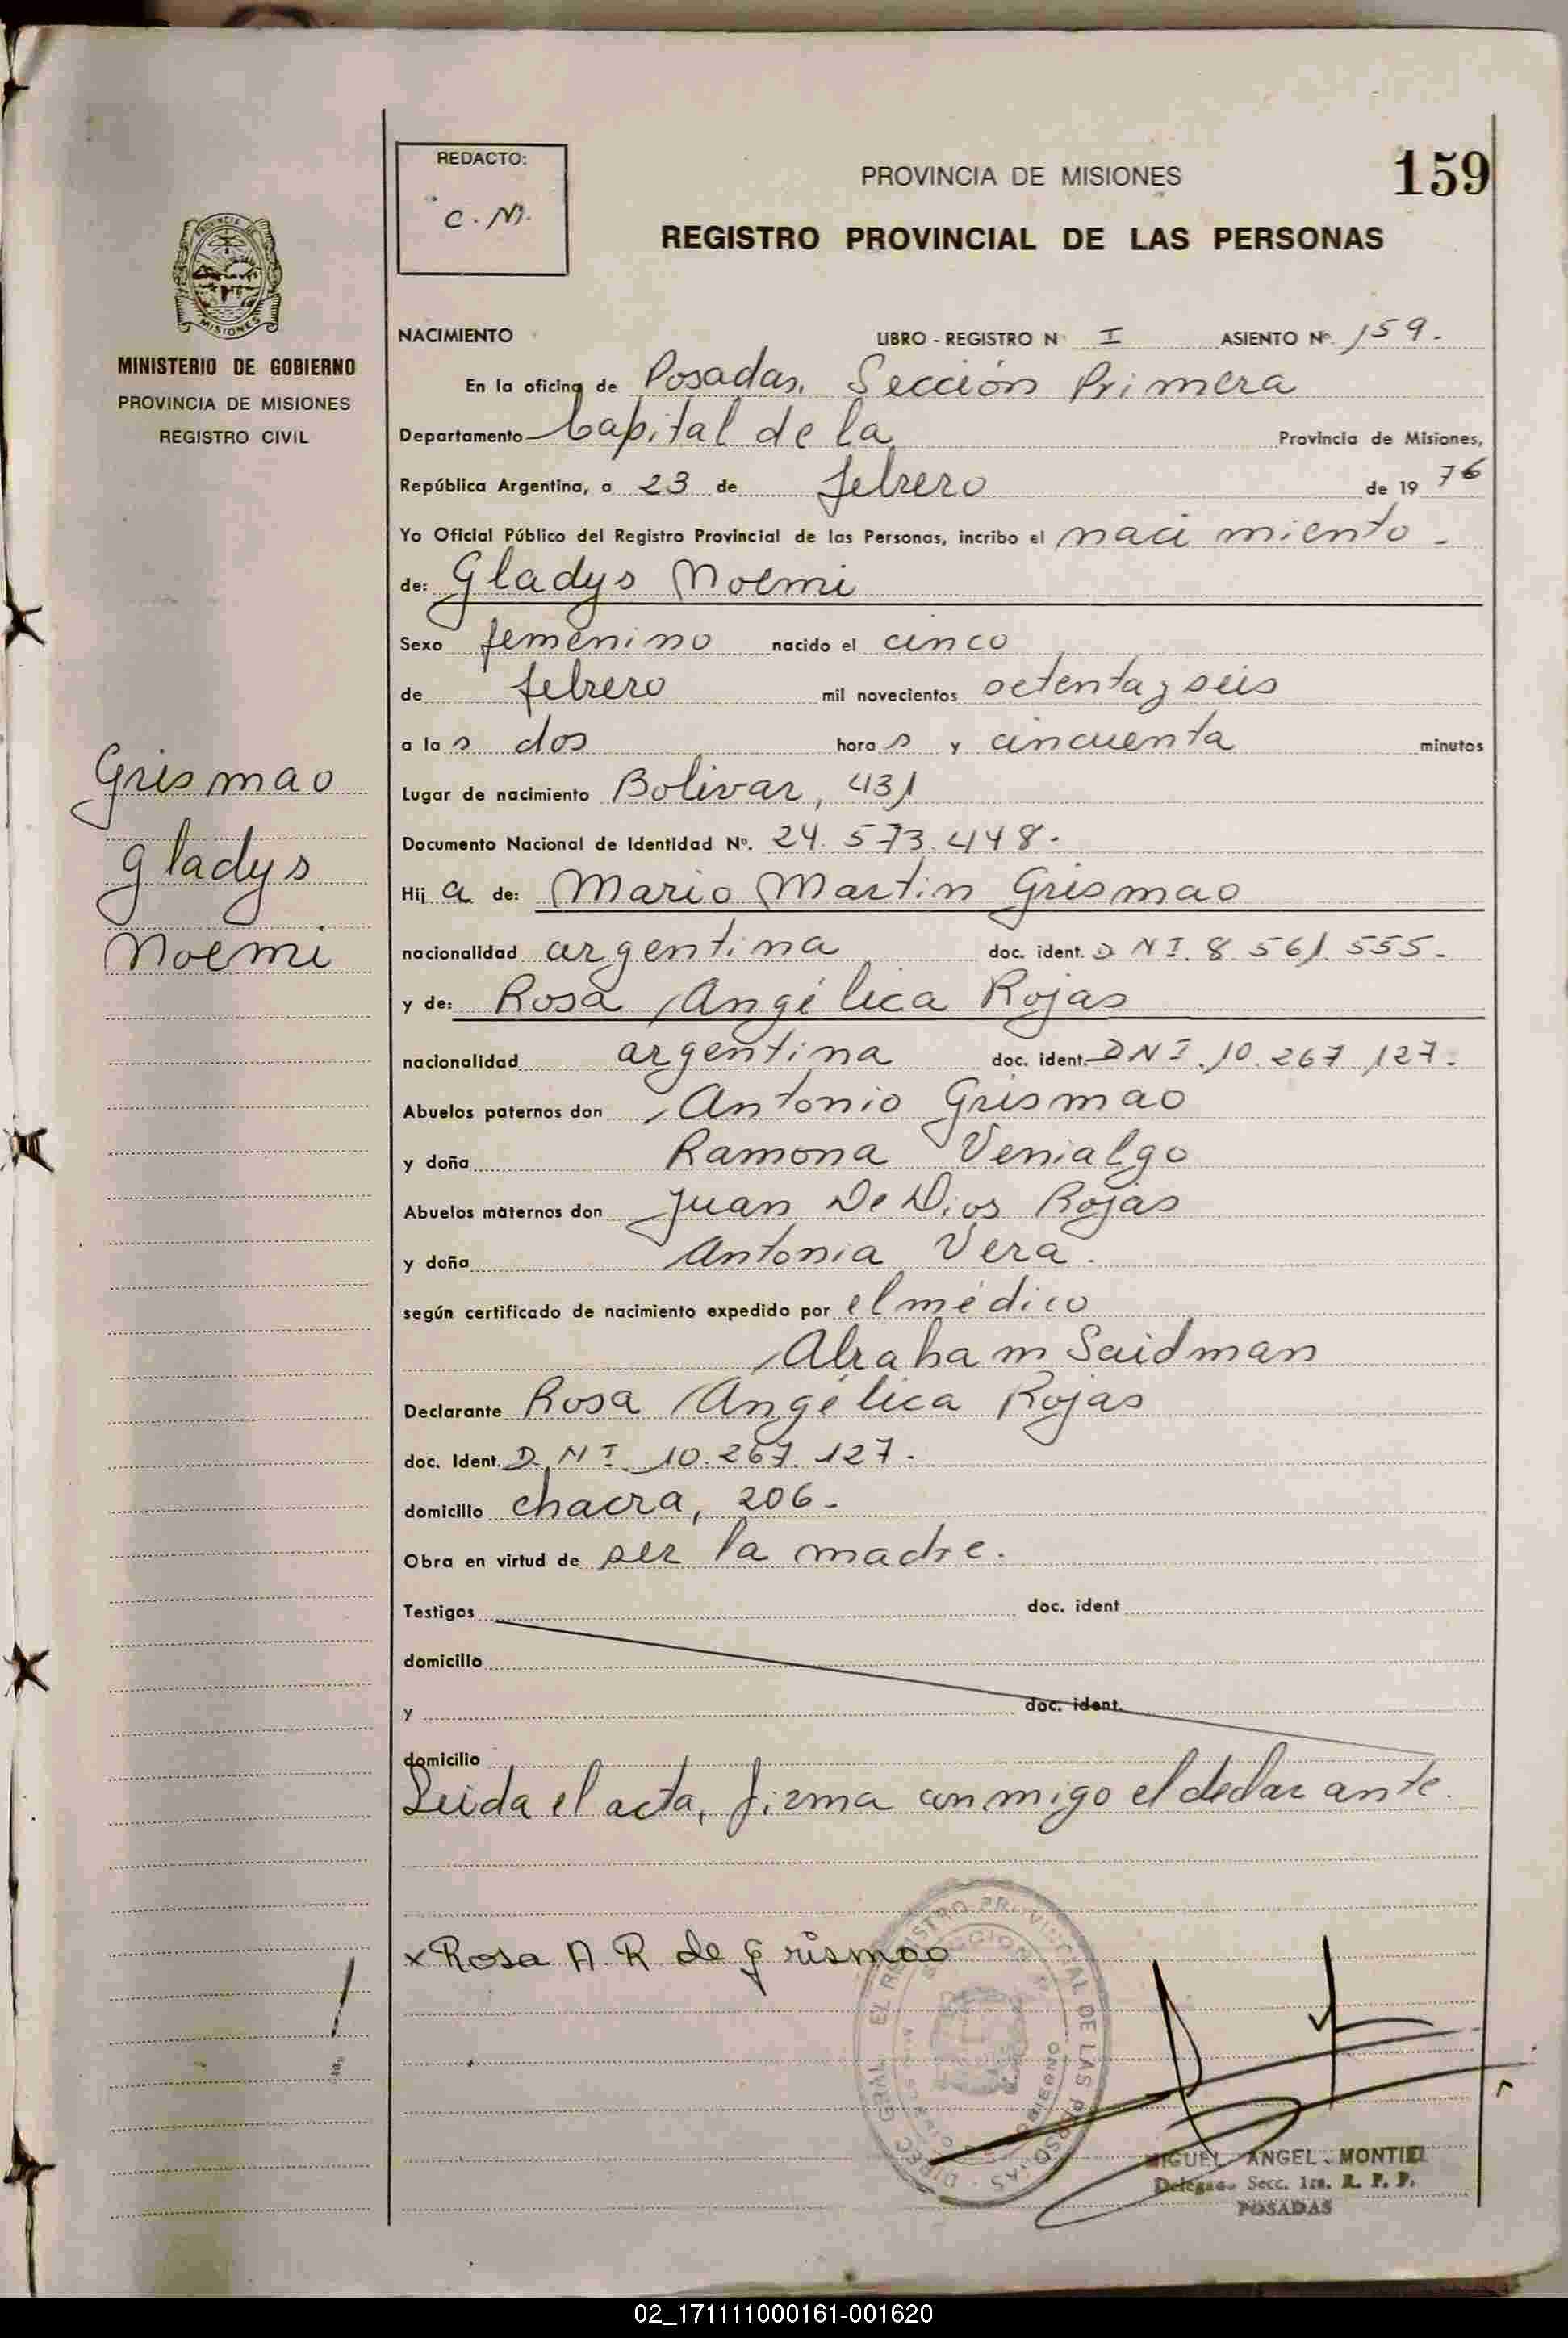 REDACTO:
C. M.
PROVINCIA DE MISIONES
159
REGISTRO PROVINCIAL DE LAS PERSONAS
PROVINCIA DE
MISIONES
MINISTERIO DE GOBIERNO
PROVINCIA DE MISIONES
REGISTRO CIVIL
NACIMIENTO LIBRO - REGISTRO N I ASIENTO Nº 159.
En la oficina de Posadas. Sección Primera
Departamento Capital de la Provincia de Misiones,
República Argentina, a 23 de febrero de 19 76
Yo Oficial Público del Registro Provincial de las Personas, incribo el naci miento -
de: Gladys Noemi
Sexo femenino nacido el cinco
de febrero mil novecientos setenta y seis
a la s dos hora s y cincuenta minutos
Lugar de nacimiento Bolivar, 431
Documento Nacional de Identidad Nº. 24.573.448.
Hij a de: Mario Martin Grismao
nacionalidad argentina doc. ident. D N I. 8.561.555.
y de: Rosa Angélica Rojas
nacionalidad argentina doc. ident. D N I. 10.267.127.
Abuelos paternos don Antonio Grismao
y doña Ramona Venialgo
Abuelos maternos don Juan De Dios Rojas
y doña Antonia Vera.
según certificado de nacimiento expedido por el médico
Abraham Saidman
Declarante Rosa Angélica Rojas
doc. Ident. D. N I. 10.267.127.
domicilio chacra, 206.
Obra en virtud de ser la madre.
Testigos doc. ident
domicilio
y doc. ident.
domicilio
Leida el acta, firma conmigo el declarante.
Grismao
Gladys
Noemi
x Rosa A. R de grismao
DIREC GENL EL REGISTRO PROVINCIAL DE LAS PERSONAS
MIGUEL ANGEL MONTIEL
Delegado Secc. 1ra. R. P. P.
POSADAS
02_171111000161-001620